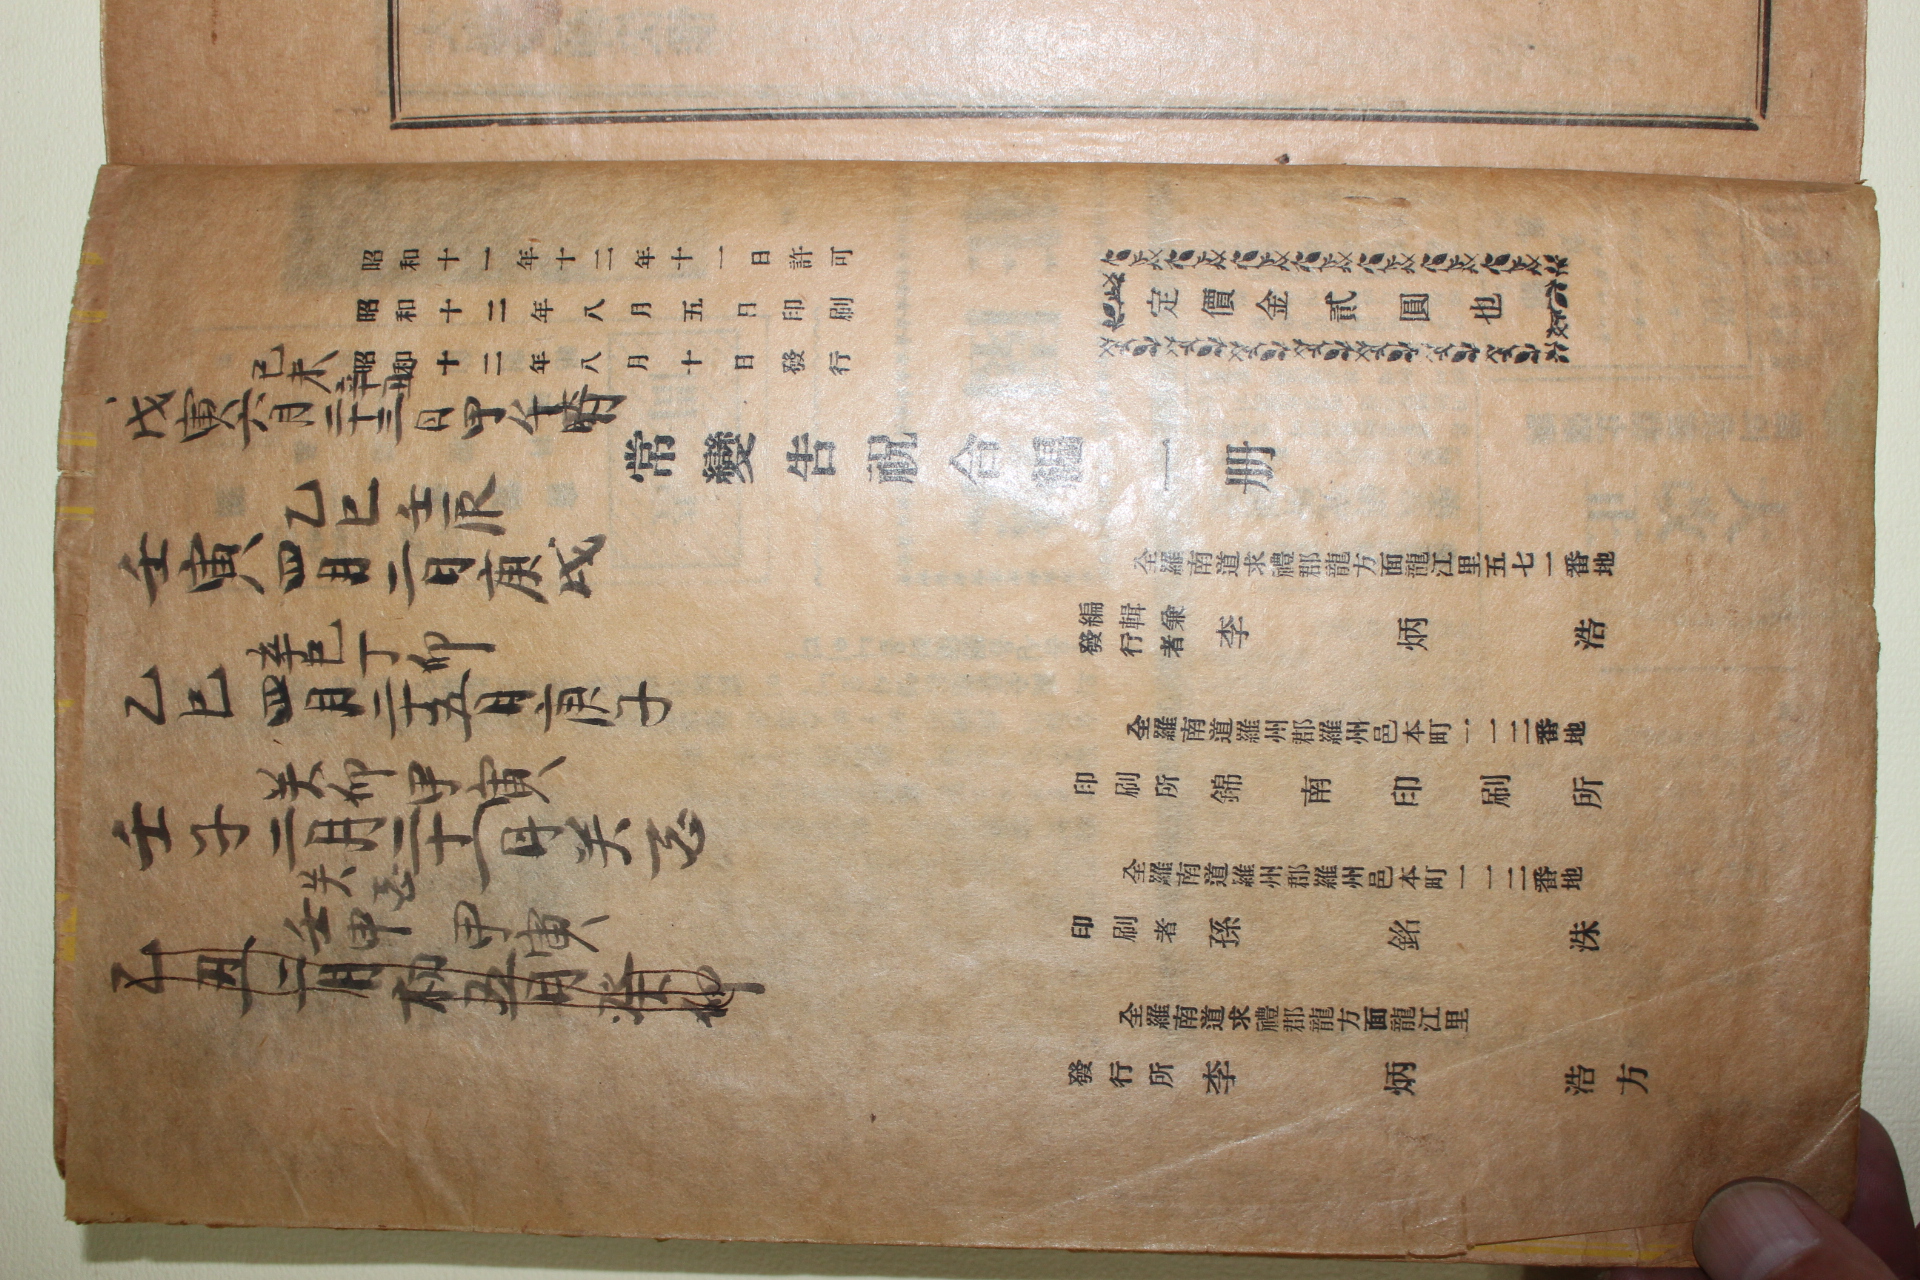 昭和十一年十二年十一日許可
昭和十二年八月五日印刷
昭和十二年八月十日發行
定價金貳圓也
常變告祝合編一册
全羅南道求禮郡龍方面龍江里五七一番地
編輯兼
發行者 李炳浩
全羅南道羅州郡羅州邑本町一一二番地
印刷所 錦南印刷所
全羅南道羅州郡羅州邑本町一一二番地
印刷者 孫銘洙
全羅南道求禮郡龍方面龍江里
發行所 李炳浩方
己未
戊寅六月二十三日甲午
乙巳壬辰
壬寅四月二日庚戌
丁卯
乙巳四月二十五日庚子
癸卯甲寅
壬子二月二十一日癸
壬申 甲寅
乙丑二月初五日